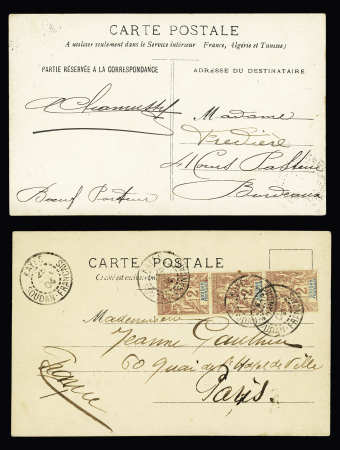 CARTE POSTALE
A utiliser seulement dans le Service intérieur (France, Algérie et Tunisie)
PARTIE RÉSERVÉE A LA CORRESPONDANCE
ADRESSE DU DESTINATAIRE
Madame
Predière
Cours Pasteur
Bordeaux
Boeuf Porteur
CARTE POSTALE
Ce côté est exclusivement
KAYES
SOUDAN-FRANÇAIS
Mademoiselle
Jeanne Gauthier
60 Quai de l'Hotel de Ville
Paris.
France